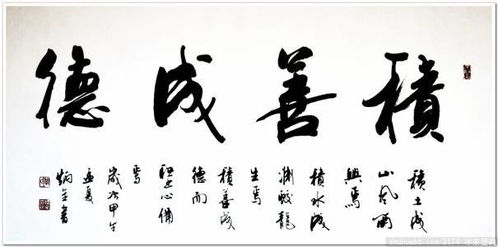 積善成德
積土成
山風雨
興焉
積水成
淵蛟龍
生焉
積善成
德而
聖心備
焉
歲次甲午
孟夏
炳書